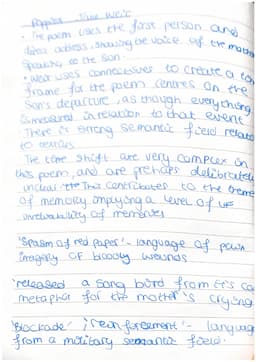 Poppies - Jane Weir
• The poem uses the first person and
direct address, showing the voice of the mother
speaking to the son.
• Weir uses connectives to create a
frame for the poem centres on the
son's departure, as though everything
is measured in relation to that event
• There is strong semantic field related
to textiles
The time shift are very complex in
this poem, and are prehaps deliberately
unclear. This contributes to the theme
of memory implying a level of
unreliability of memories
'Spasm of red paper' - language of pain
imagery OF bloody wounds
'released a song bird from it's ca
metaphor for the mother's crying.
'Blockade' 'reinforcement' - languag
from a military semantic field.